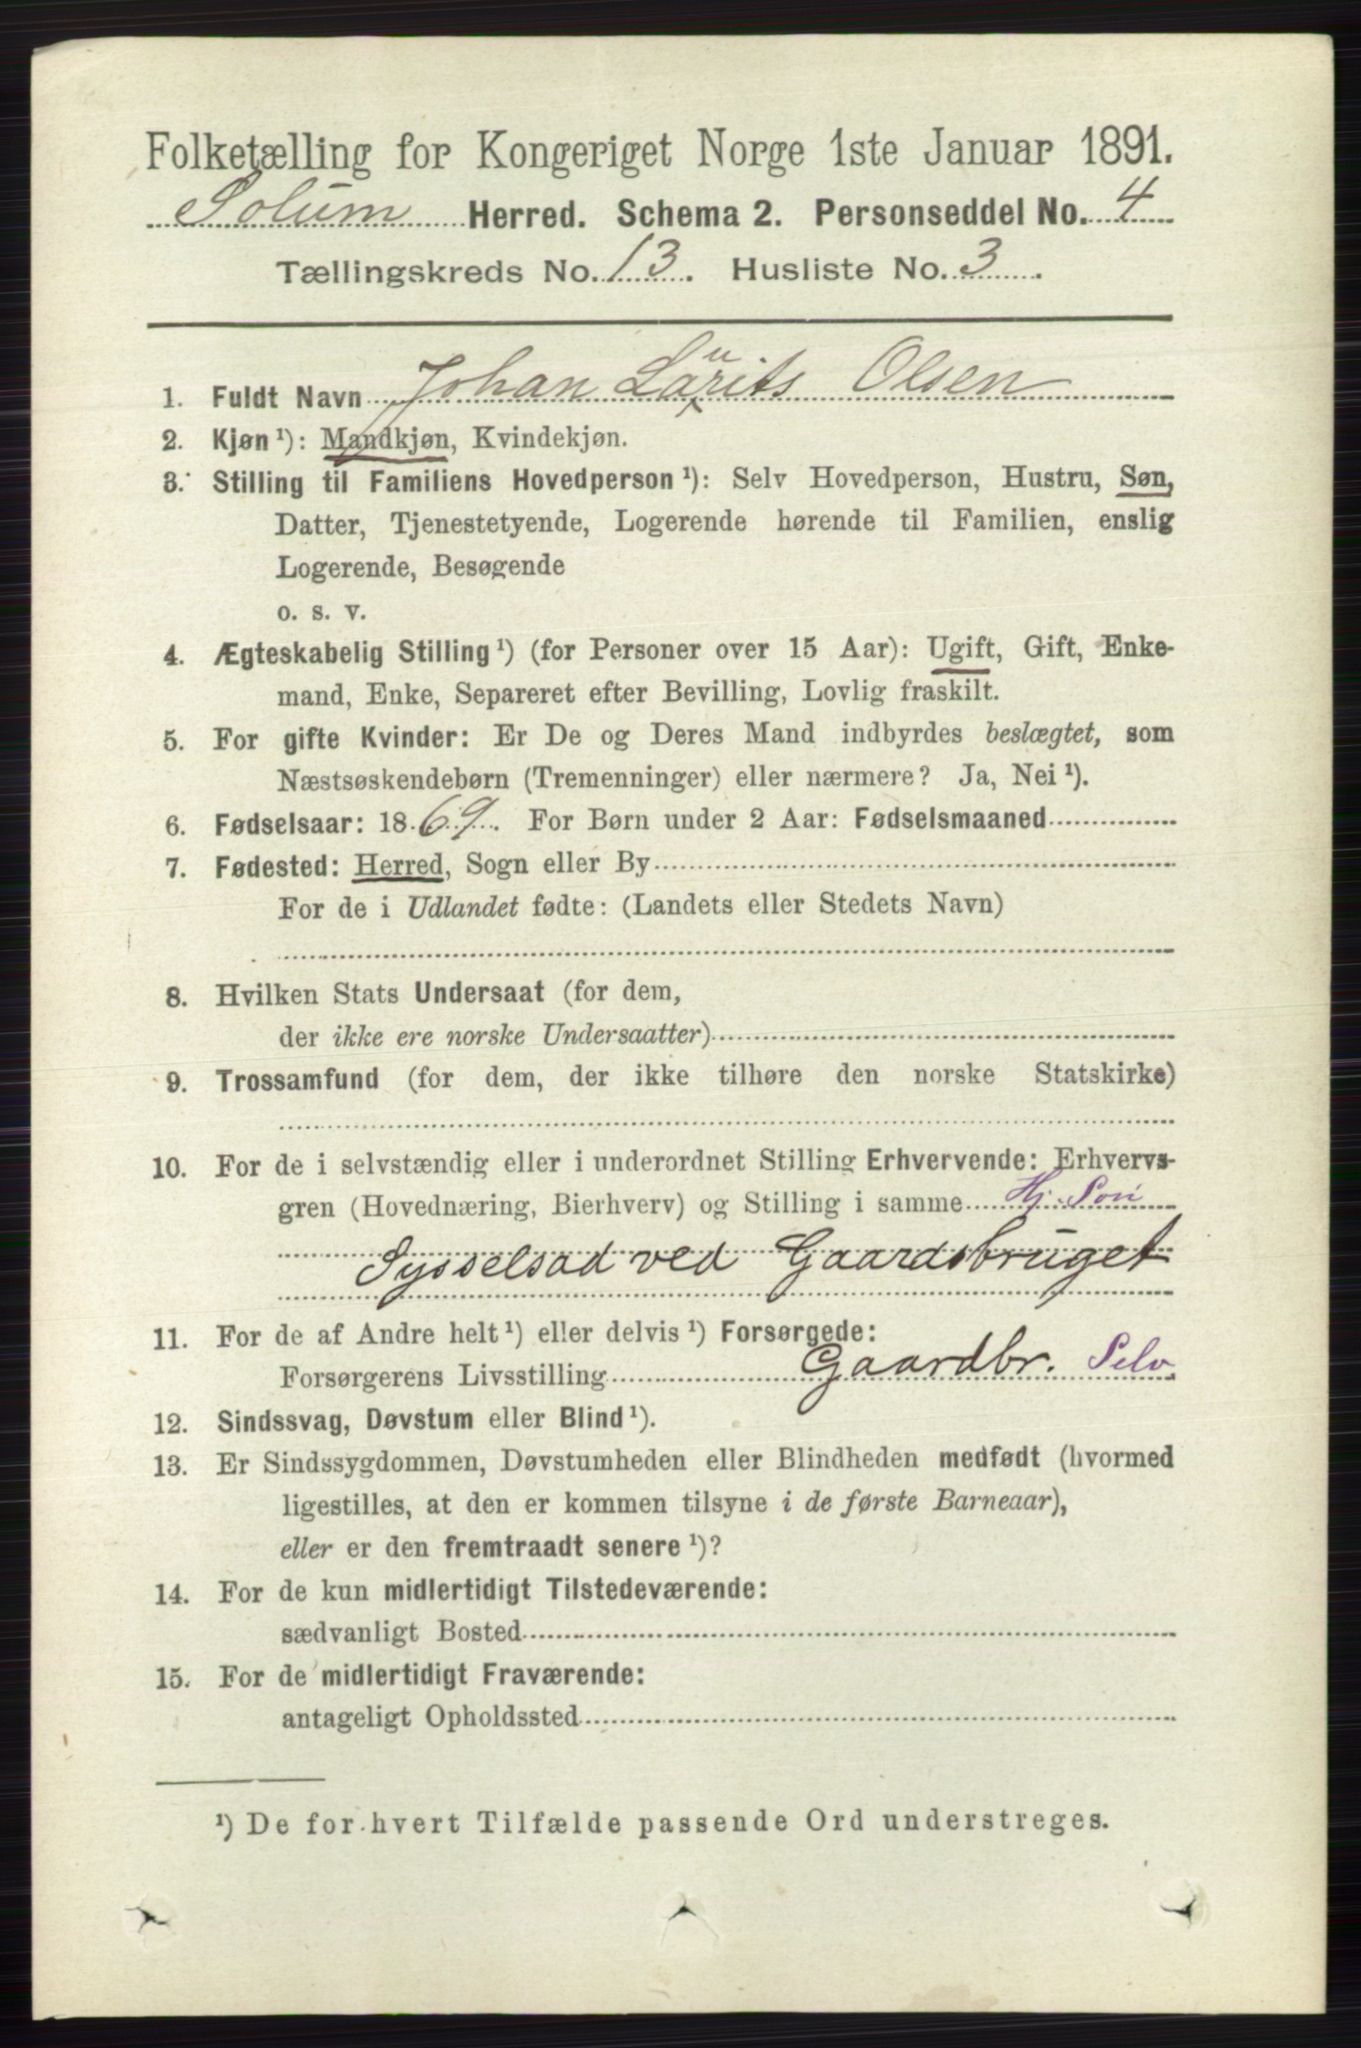 Folketælling for Kongeriget Norge 1ste Januar 1891.
Solum Herred. Schema 2. Personseddel No. 4
Tællingskreds No. 13. Husliste No. 3.
1. Fuldt Navn Johan Laurits Olsen
2. Kjøn¹): Mandkjøn, Kvindekjøn.
3. Stilling til Familiens Hovedperson¹): Selv Hovedperson, Hustru, Søn,
Datter, Tjenestetyende, Logerende hørende til Familien, enslig
Logerende, Besøgende
o. s. v.
4. Ægteskabelig Stilling¹) (for Personer over 15 Aar): Ugift, Gift, Enke-
mand, Enke, Separeret efter Bevilling, Lovlig fraskilt.
5. For gifte Kvinder: Er De og Deres Mand indbyrdes beslægtet, som
Næstsøskendebørn (Tremenninger) eller nærmere? Ja, Nei¹).
6. Fødselsaar: 1869. For Børn under 2 Aar: Fødselsmaaned
7. Fødested: Herred, Sogn eller By
For de i Udlandet fødte: (Landets eller Stedets Navn)
8. Hvilken Stats Undersaat (for dem,
der ikke ere norske Undersaatter)
9. Trossamfund (for dem, der ikke tilhøre den norske Statskirke)
10. For de i selvstændig eller i underordnet Stilling Erhvervende: Erhvervs-
gren (Hovednæring, Bierhverv) og Stilling i samme Hj. Søn
Sysselsad ved Gaardsbruget
11. For de af Andre helt¹) eller delvis¹) Forsørgede:
Forsørgerens Livsstilling Gaardbr. Selv
12. Sindssvag, Døvstum eller Blind¹).
13. Er Sindssygdommen, Døvstumheden eller Blindheden medfødt (hvormed
ligestilles, at den er kommen tilsyne i de første Barneaar),
eller er den fremtraadt senere¹)?
14. For de kun midlertidigt Tilstedeværende:
sædvanligt Bosted
15. For de midlertidigt Fraværende:
antageligt Opholdssted
¹) De for hvert Tilfælde passende Ord understreges.